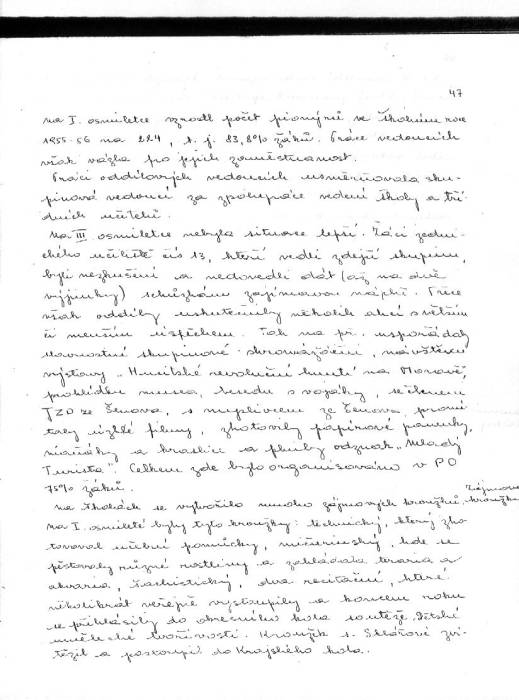 47
Na I. osmiletce vzrostl počet pionýrů ve školním roce
1955-56 na 224, t. j. 83,8% žáků. Práce vedoucích
však vázla pro jejich zaměstnanost.
Práci oddílových vedoucích usměrňovala sku-
pinová vedoucí za spolupráce vedení školy a tříd-
ních učitelů.
Na III osmiletce nebyla situace lepší. Žáci zedni-
ckého učiliště čís 13, kteří vedli zdejší skupinu,
byli nezkušení a nedovedli dát (až na dvě
výjimky) schůzkám zajímavou náplň. Přece
však oddíly uskutečnily několik akcí s větším
či menším úspěchem. Tak na př. uspořádaly
slavnostní skupinové shromáždění, návštěvu
výstavy "Husitské revoluční hnutí na Moravě",
prohlídku musea, besedu s vojáky, se členem
JZD ze Šenova, s myslivcem ze Šenova, promí-
taly úzké filmy, zhotovily papírové panenky,
maňásky a kraslice a plnily odznak "Mladý
Turista". Celkem zde bylo organisováno v PO
75% žáků.
Na školách se vytvořilo mnoho zájmových kroužků. Zájmové kroužky
Na I. osmileté byly tyto kroužky: technický, který zho-
tovoval učební pomůcky, mičurinský, kde se
pěstovaly různé rostliny a zakládala teraria a
akvaria, šachistický, dva recitační, které
několikrát veřejně vystoupily a koncem roku
se přihlásily do okresního kola soutěže dětské
umělecké tvořivosti. Kroužek s. Sklářové zví-
tězil a postoupil do Krajského kola.